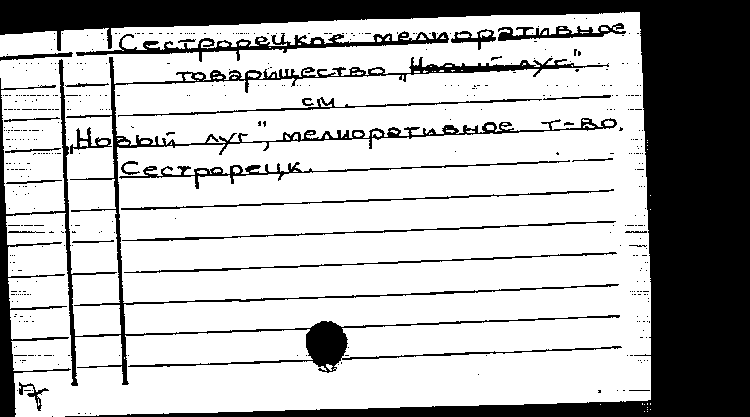 Сестрорецкое мелиоративное
товарищество „Новый луг".
см.
„Новый луг", мелиоративное т-во.
Сестрорецк.